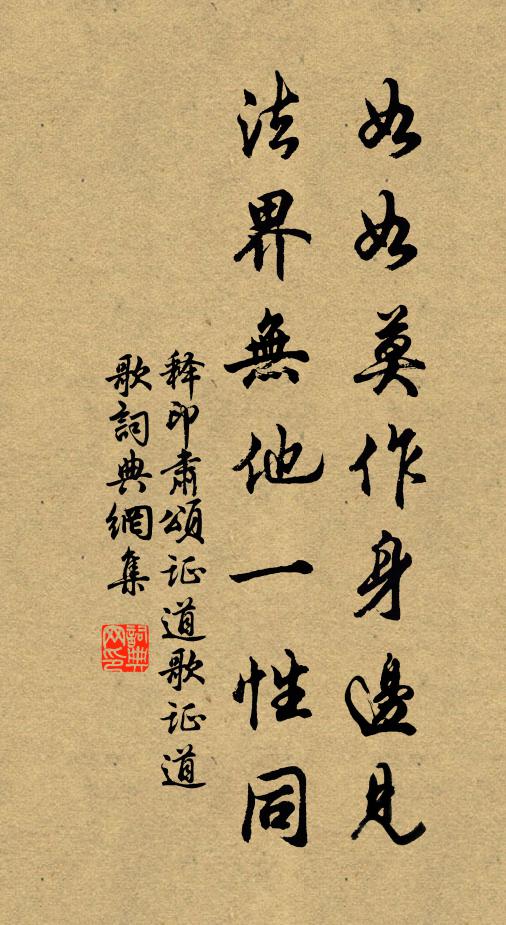 如如莫作身邊見
法界無他一性同
释印肃頌证道歌证道
歌詞典網集
詞典
网印